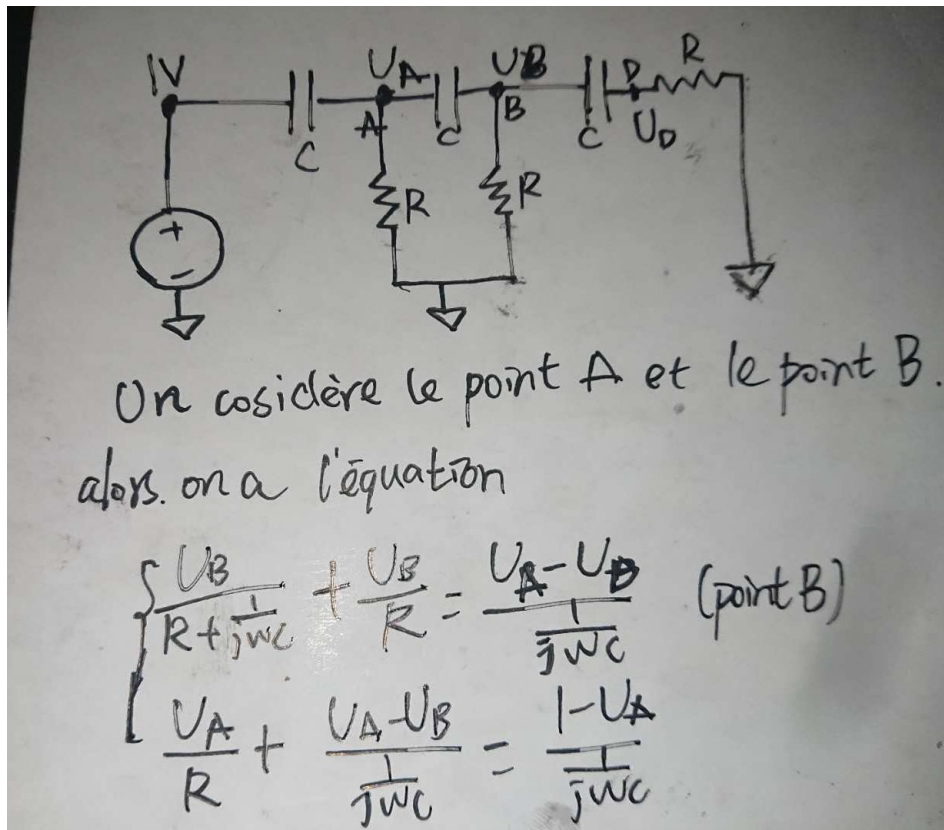 1V
U_A
U_B
R
C
A
C
B
C
D
U_D
R
R
+
-
On cosidère le point A et le point B.
alors. on a l'équation
{ U_B/(R+1/(jwc)) + U_B/R = (U_A-U_B)/(1/(jwc)) (point B)
U_A/R + (U_A-U_B)/(1/(jwc)) = (1-U_A)/(1/(jwc))